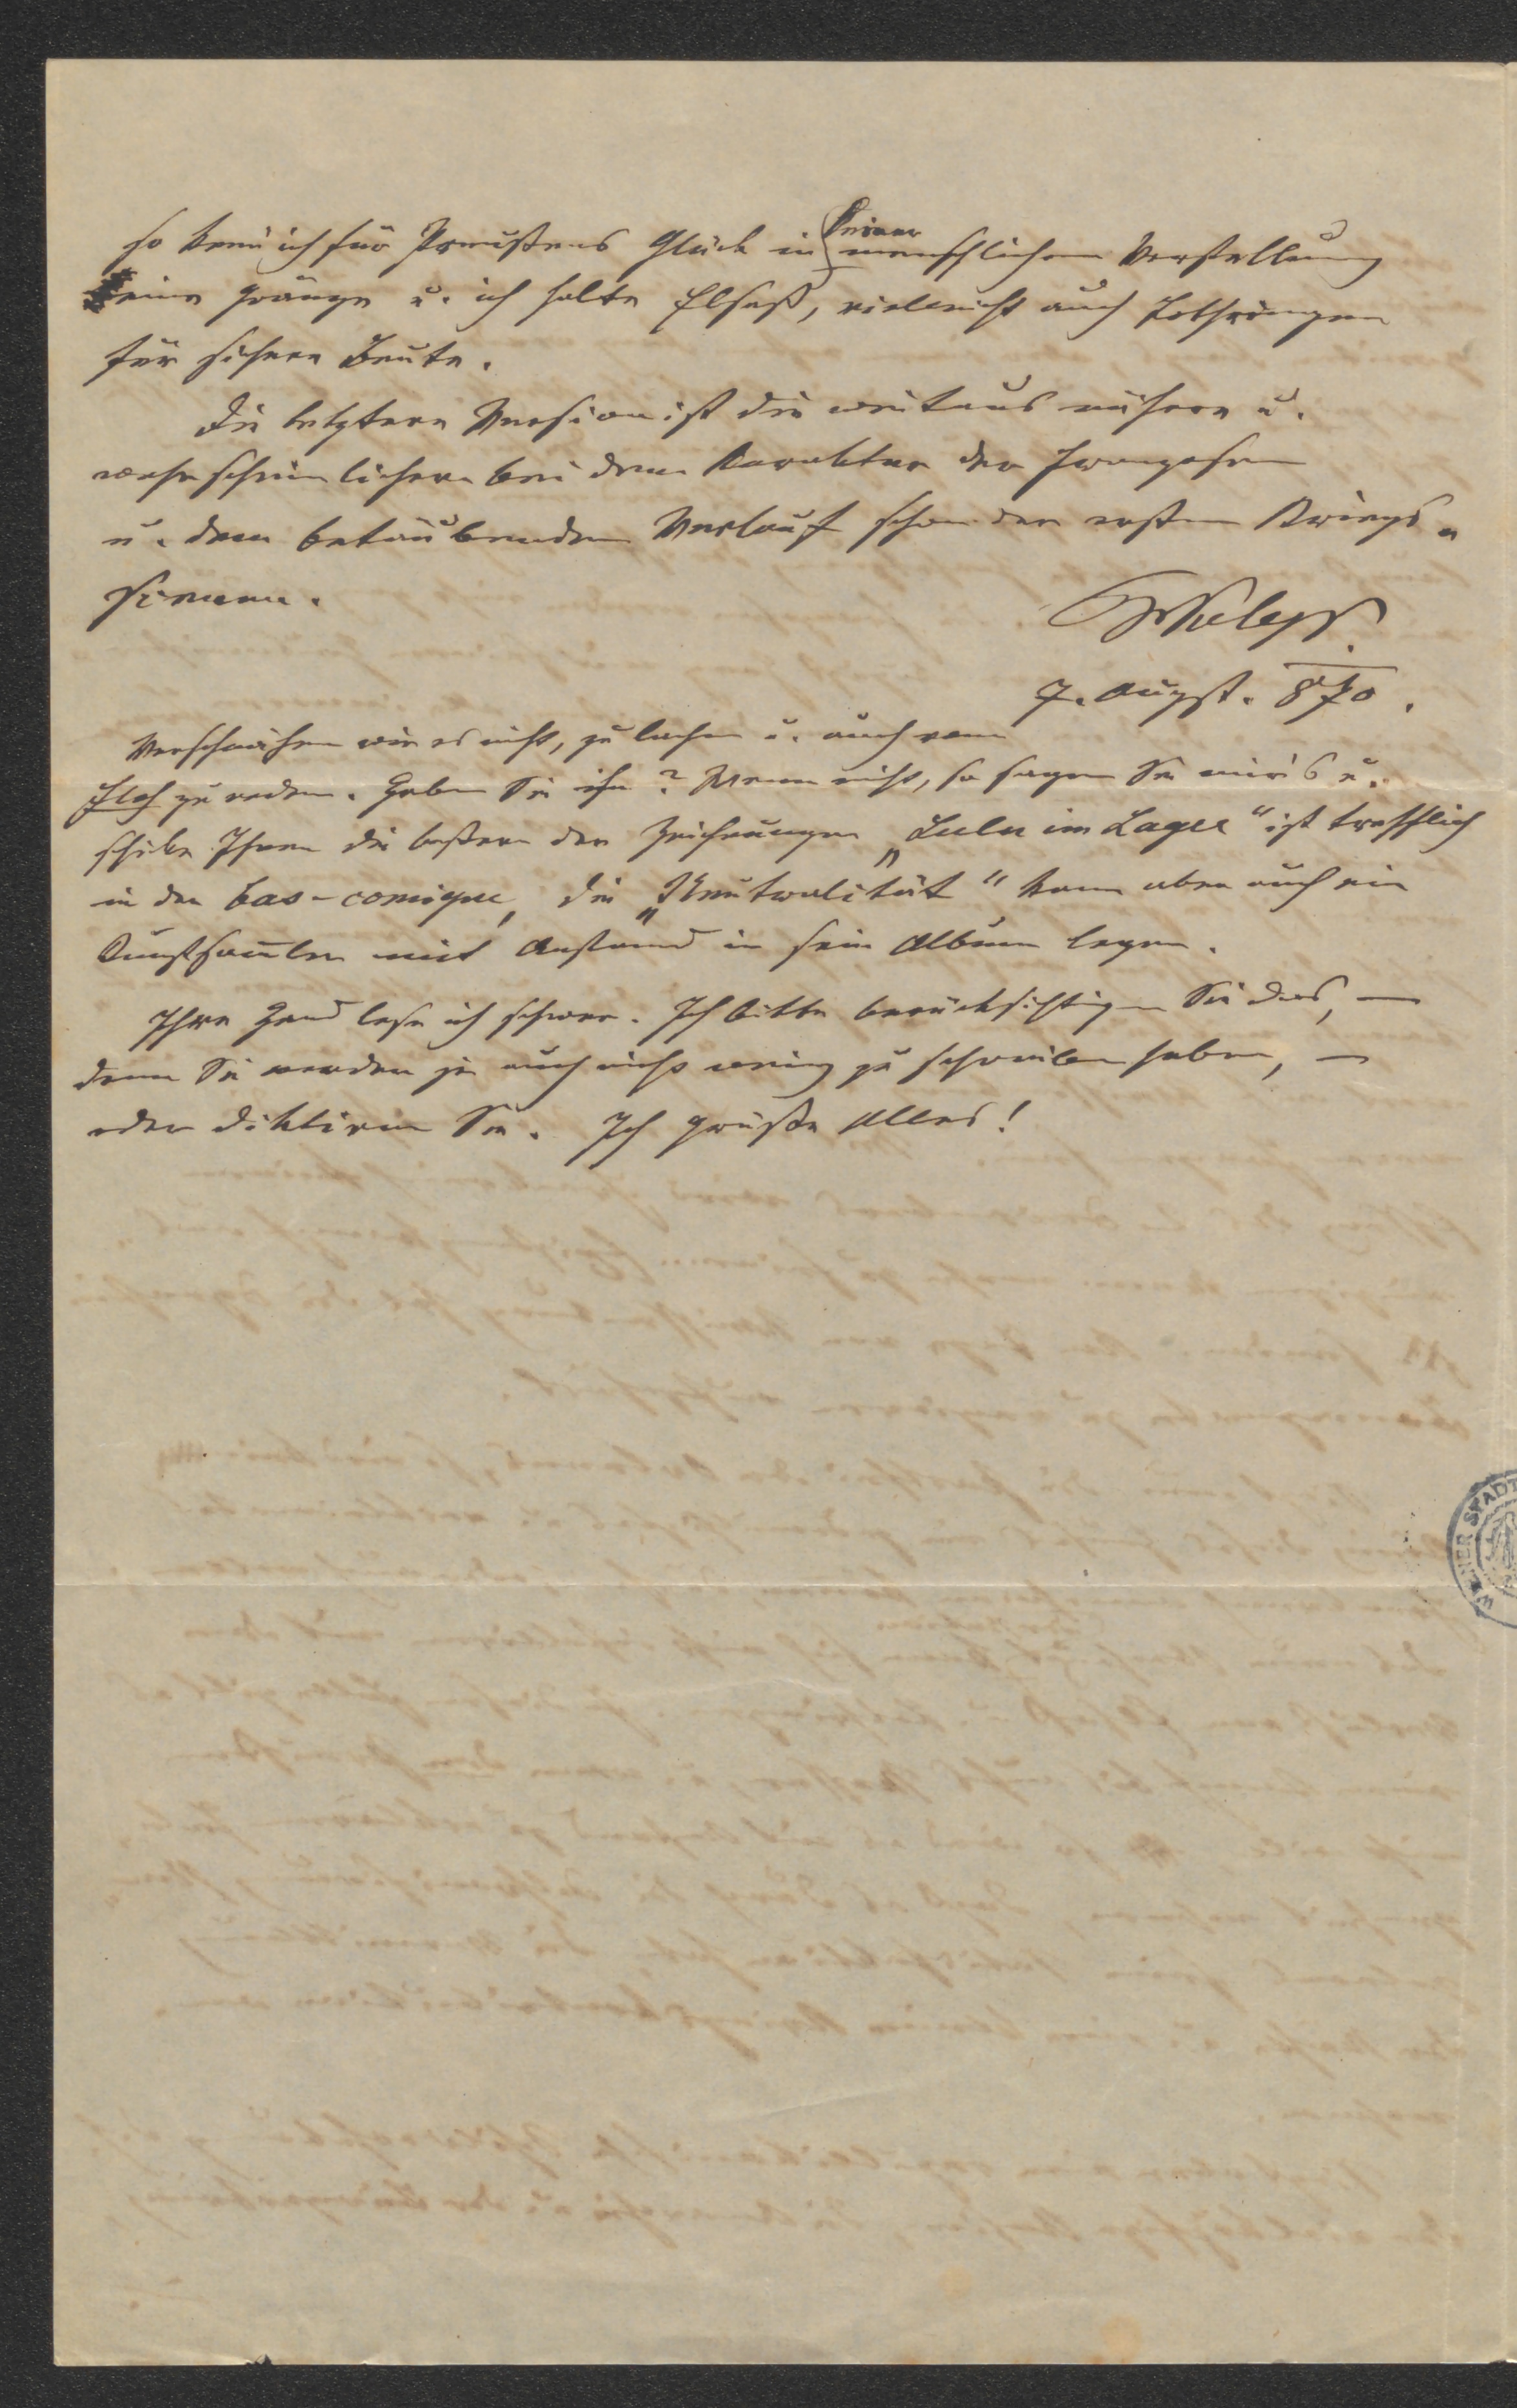 so kenn ich für Preußens Glück in keiner menschlichen Vorstellung
eine Gränze u. ich halte Elsaß, vielleicht auch Lothringen
für sichere Beute.
Die letztere Version ist die weitaus nähere u.
wahrscheinlichere bei dem Karakter der Franzosen
u. dem betäubenden Verlauf schon der ersten Kriegs-
7. Augst. 870.
Verschmähen wir es nicht, zu lachen u. auch vom
Floh zu reden. Haben Sie ihn? Wenn nicht, so sagen Sie mir's u.
schike Ihnen die beßern der Zeichnungen „Lulu im Lager“ ist trefflich
in der bas-comique, die „Neutralität“ kann aber auch ein
Kunstsamler mit Anstand in sein Album legen.
Ihre Hand lese ich schwer. Ich bitte berücksichtigen Sie dies, —
denn Sie werden ja auch nicht wenig zu schreiben haben, —
oder diktiren Sie. Ich grüße Alles!
WIENER STADT